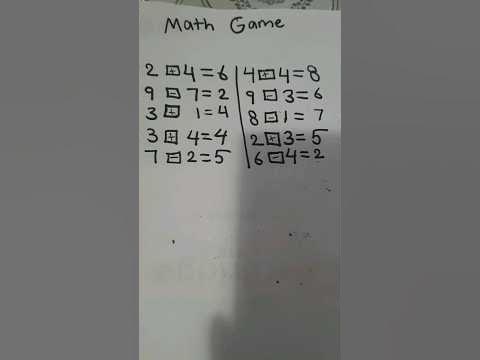 Math Game
2 + 4 = 6
9 - 7 = 2
3 + 1 = 4
3 + 4 = 4
7 - 2 = 5
4 + 4 = 8
9 - 3 = 6
8 - 1 = 7
2 + 3 = 5
6 - 4 = 2